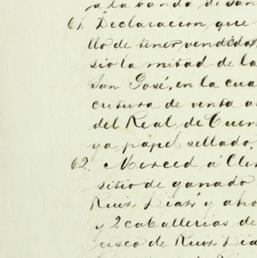 a la banda de San
61. Declaracion, que
llo de tener vendido,
sio la mitad de la
San José, en la cua
critura de venta a
del Real de Cuen
ya papel sellado.
62. Merced á
sitio de ganado
Ruiz Diaz y aho
y 2 caballerias de
cisco de Ruiz Dia